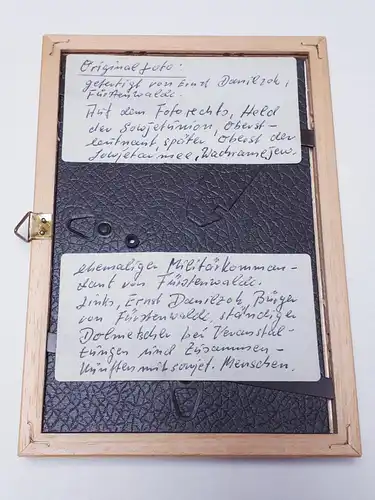 Originalfoto:
gefertigt von Ernst Danilzok,
Fürstenwalde.
Auf dem Foto rechts, Held
der Sowjetunion, Oberst-
leutnant, später Oberst der
Sowjetarmee,
ehemaliger Militärkomman-
dant von Fürstenwalde.
Links, Ernst Danilzok, Bürger
von Fürstenwalde, ständiger
Dolmetscher bei Veranstal-
tungen und Zusammen-
künften mit sowjet. Menschen.